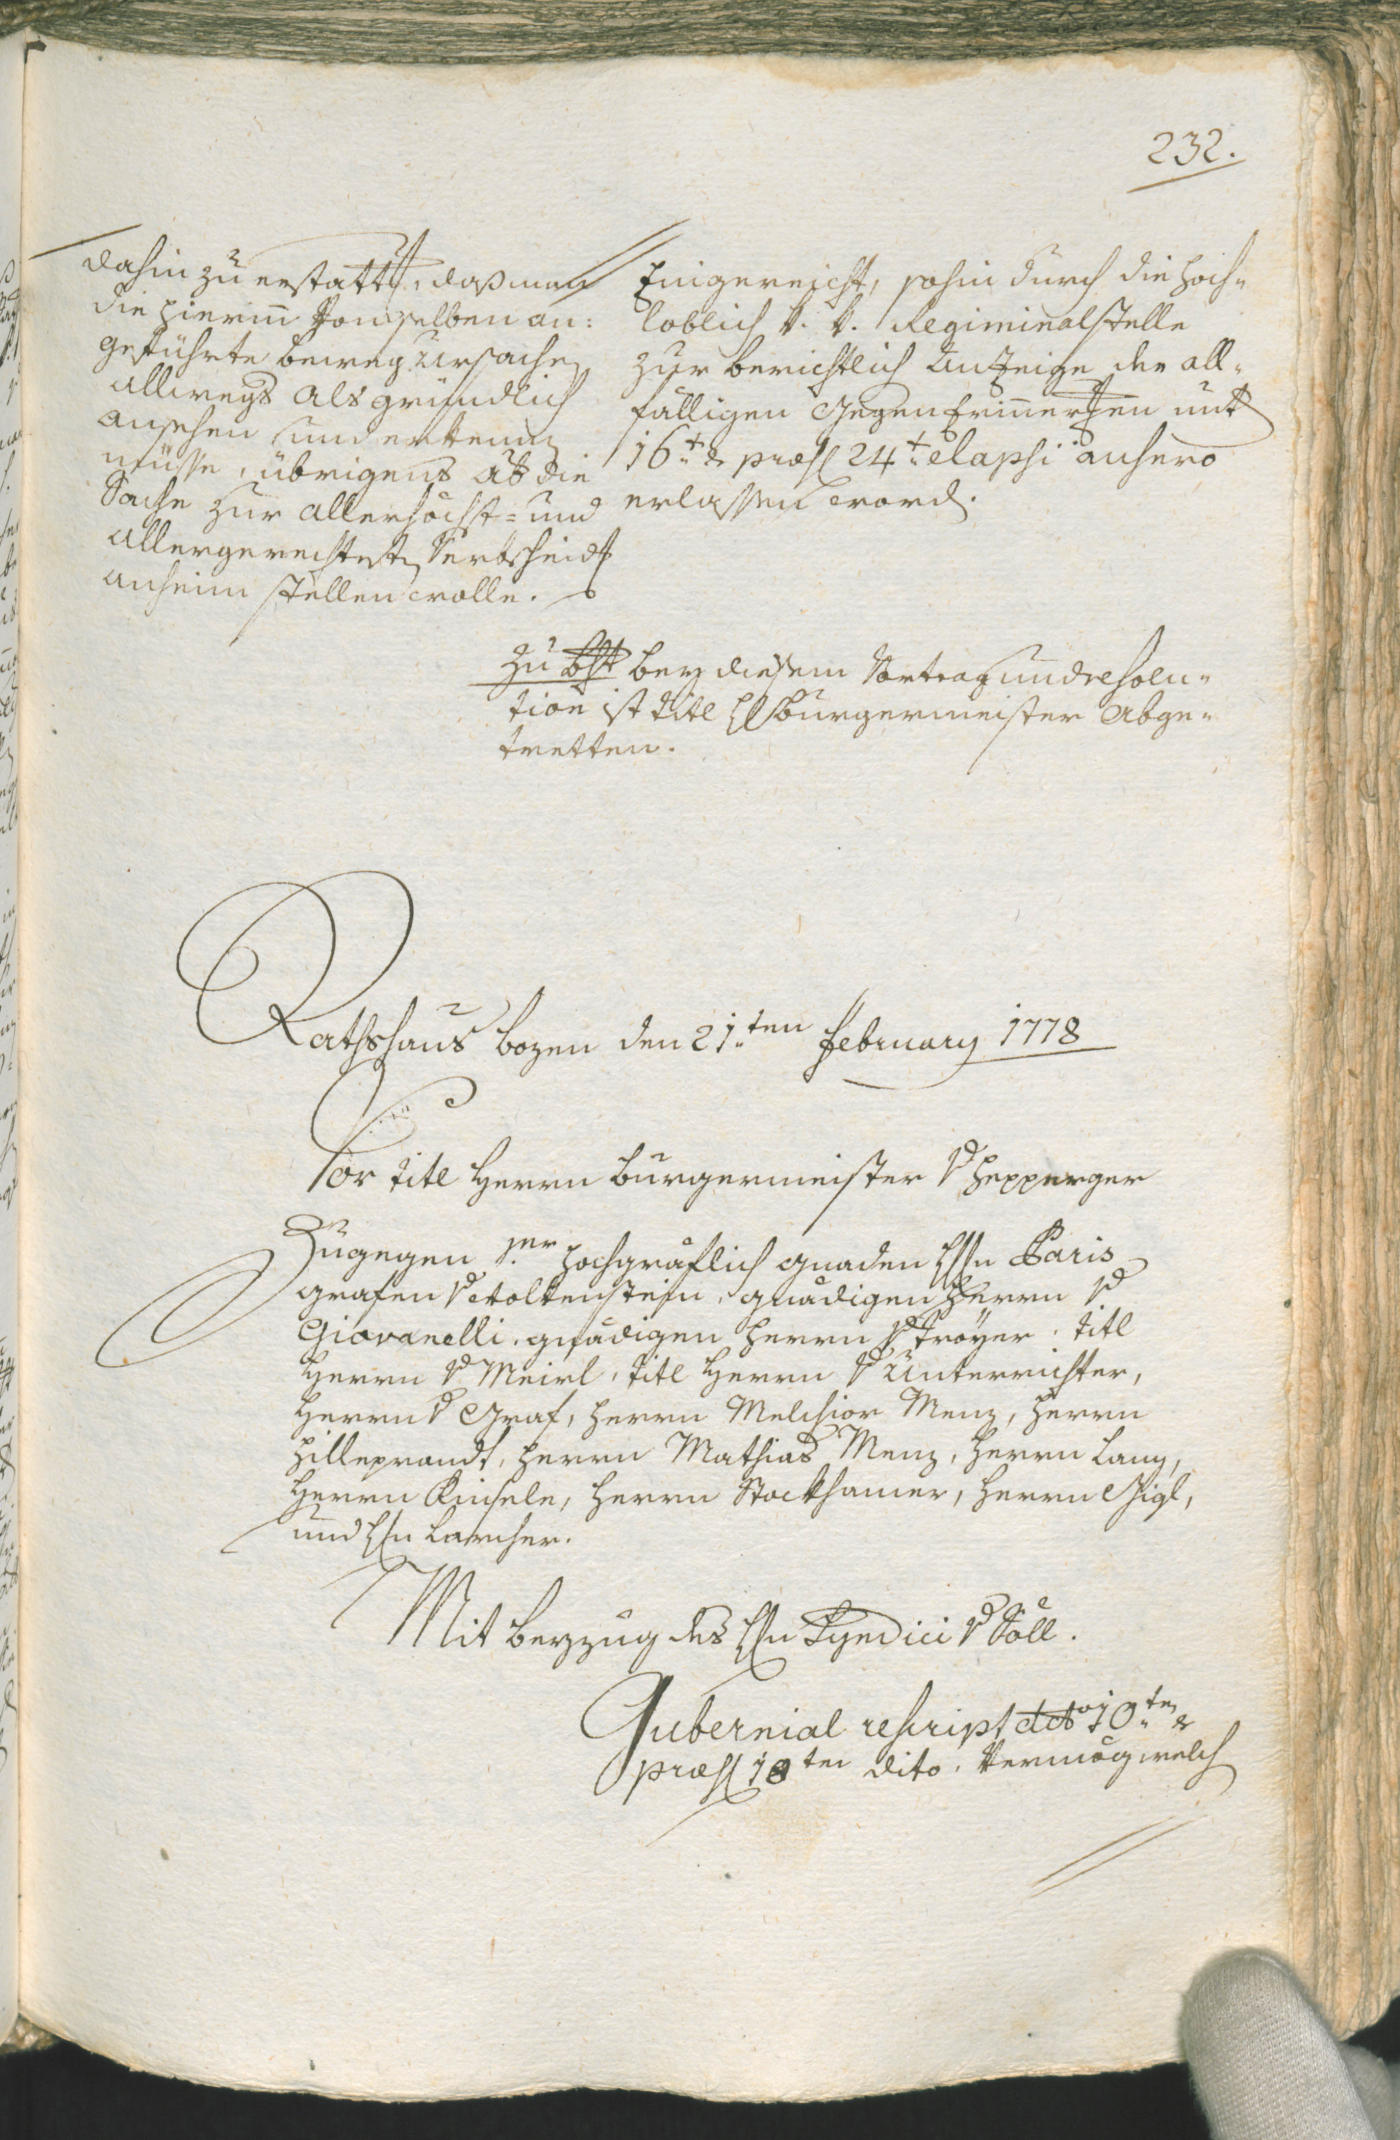 232.
dahin zu erstatten, daß man
die hierinn von selben an¬
geführte bewegursachen
allwegs als gründlich
ansehen und erkennen
müsse, übrigens aber die
Sache zur allerhöchst- und
allergerechtesten Entscheidung
anheim stellen wolle.
Eingereicht, sohin durch die hoch¬
loblich k. k. Regiminalstelle
zur berichtlich Anzeige der all¬
fälligen Gegen Erinnerungen unter
16ten et præs 24ten elapsi anhero
erlassen word.
bey diesem Vortrag und resolu¬
tion ist titl H Burgermeister Abge¬
tretten.
Rathshaus Bozen den 21.ten February 1778
Vor titl Herrn Burgermeister v Hepperger
Zugegen Sr hochgräflich Gnaden Hrn Paris
Grafen v Wolkenstein, gnädigen Herrn v
Giovanelli, gnädigen Herrn v Tröyer, titl
Herrn v Meirl, titl Herrn v Unterrichter,
Herrn v Graf, Herrn Melchior Menz, Herrn
Hilleprandt, Herrn Mathias Menz, Herrn Lang,
Herrn Kinsele, Herrn Stockhamer, Herrn Gigl,
und Hrn Larcher.
Mit beyzug des Hrn Syndici v Söll.
Gubernial rescript ddto 10ten et
præs 18ten dito, vermög welch